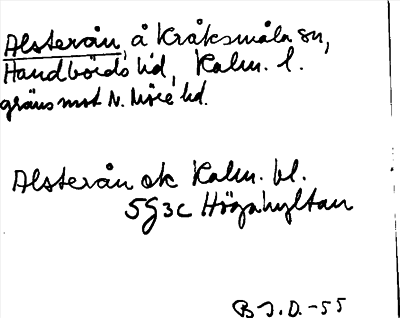 Alsterån, å Kråksmåla sn,
Handbörds hd, Kalm. l.
gräns mot N. Möre hd.
Alsterån ek Kalm. bl.
5G3c Högahyltan
B J.D.-55